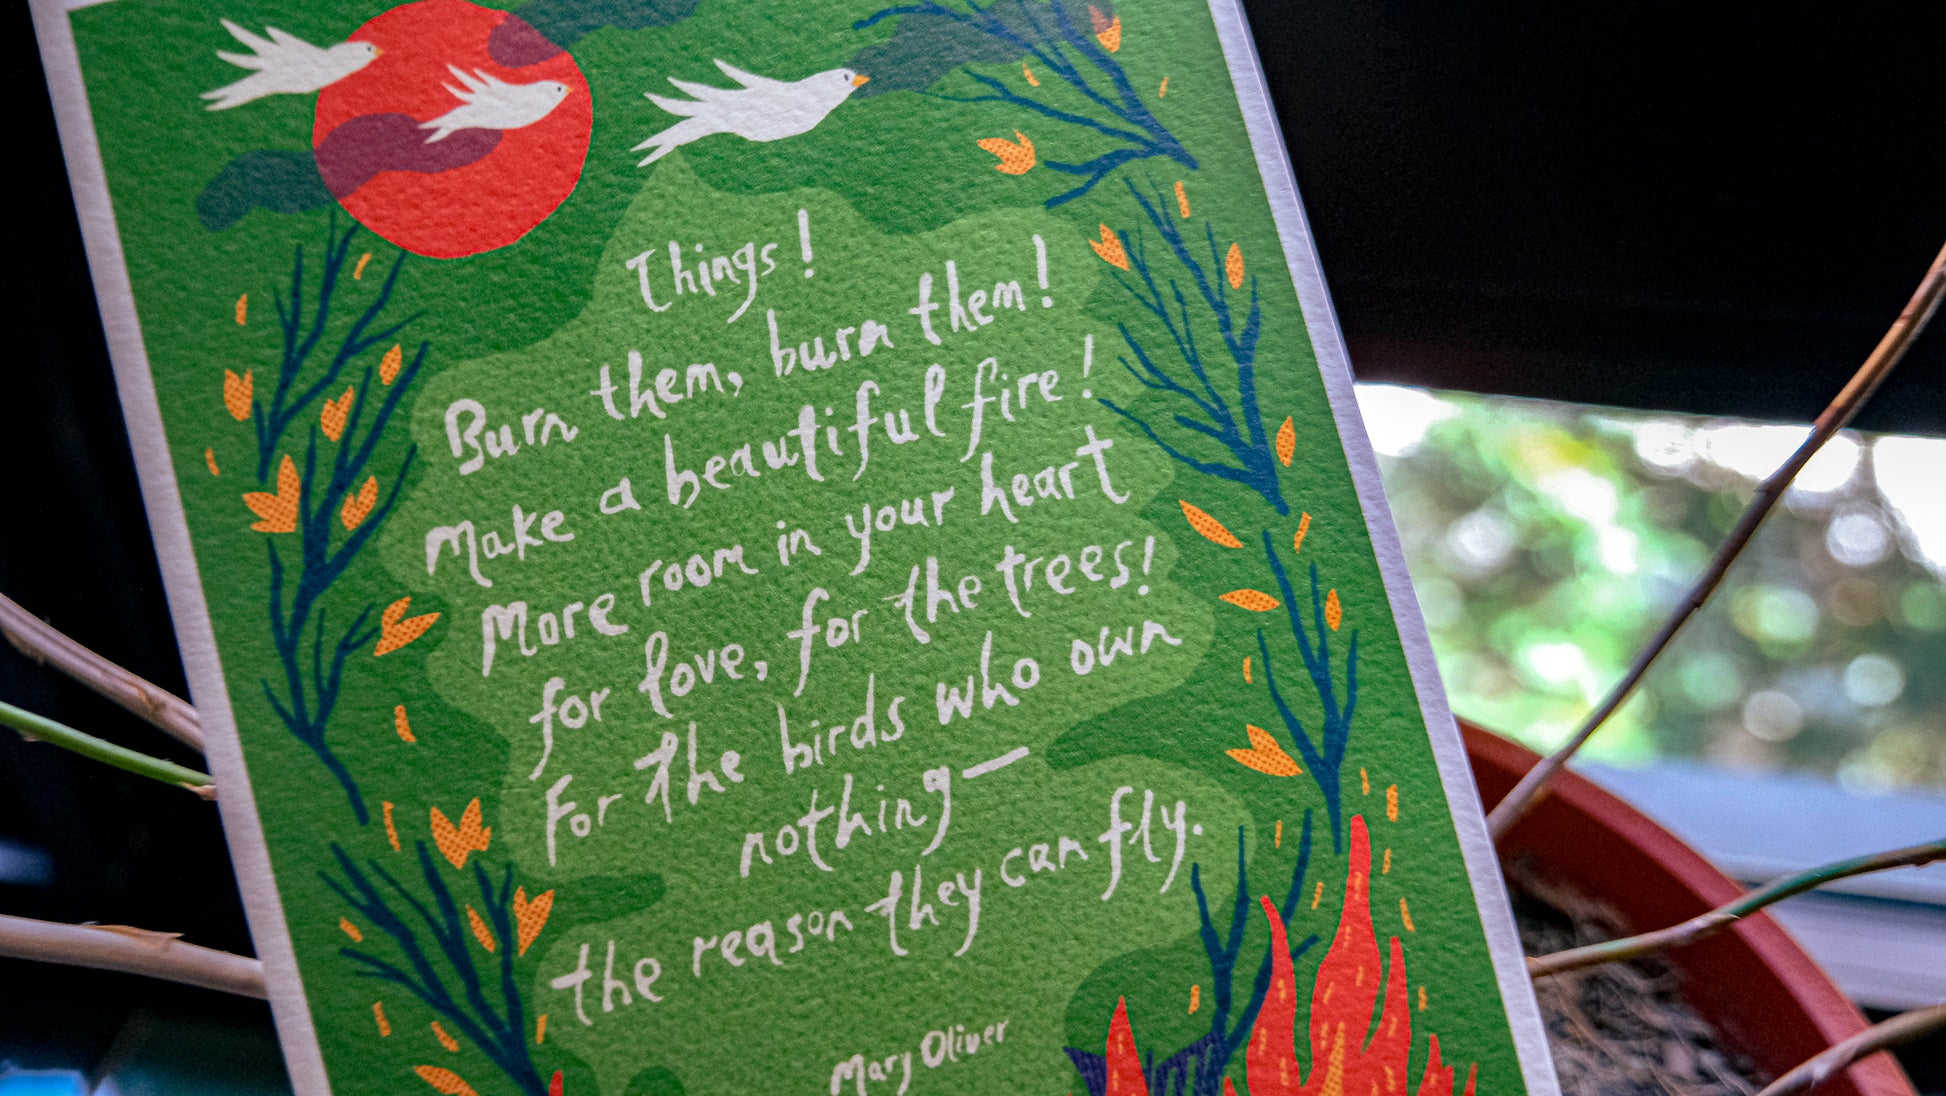 Things!
Burn them, burn them!
Make a beautiful fire!
More room in your heart
for love, for the trees!
For the birds who own
nothing—
the reason they can fly.
Mary Oliver